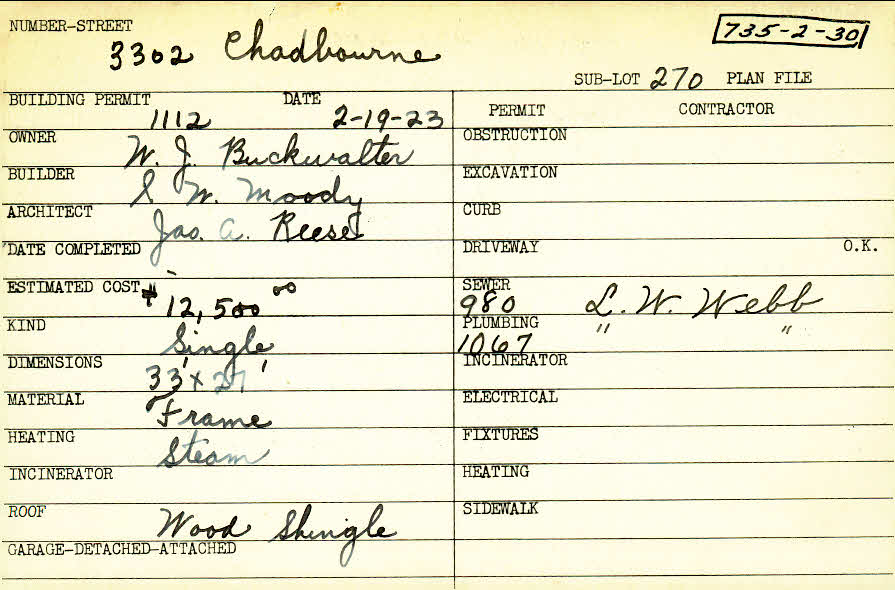 NUMBER-STREET
3302 Chadbourne
735-2-30
SUB-LOT 270 PLAN FILE
BUILDING PERMIT DATE
1112 2-19-23
OWNER
W. J. Buckwalter
BUILDER
S. W. Moody
ARCHITECT
Jas. A. Reese
DATE COMPLETED
ESTIMATED COST
# 12,500 00
KIND
Single
DIMENSIONS
33' x 27'
MATERIAL
Frame
HEATING
Steam
INCINERATOR
ROOF
Wood Shingle
GARAGE-DETACHED-ATTACHED
PERMIT CONTRACTOR
OBSTRUCTION
EXCAVATION
CURB
DRIVEWAY O.K.
SEWER
980 L. W. Webb
PLUMBING " "
1067
INCINERATOR
ELECTRICAL
FIXTURES
HEATING
SIDEWALK